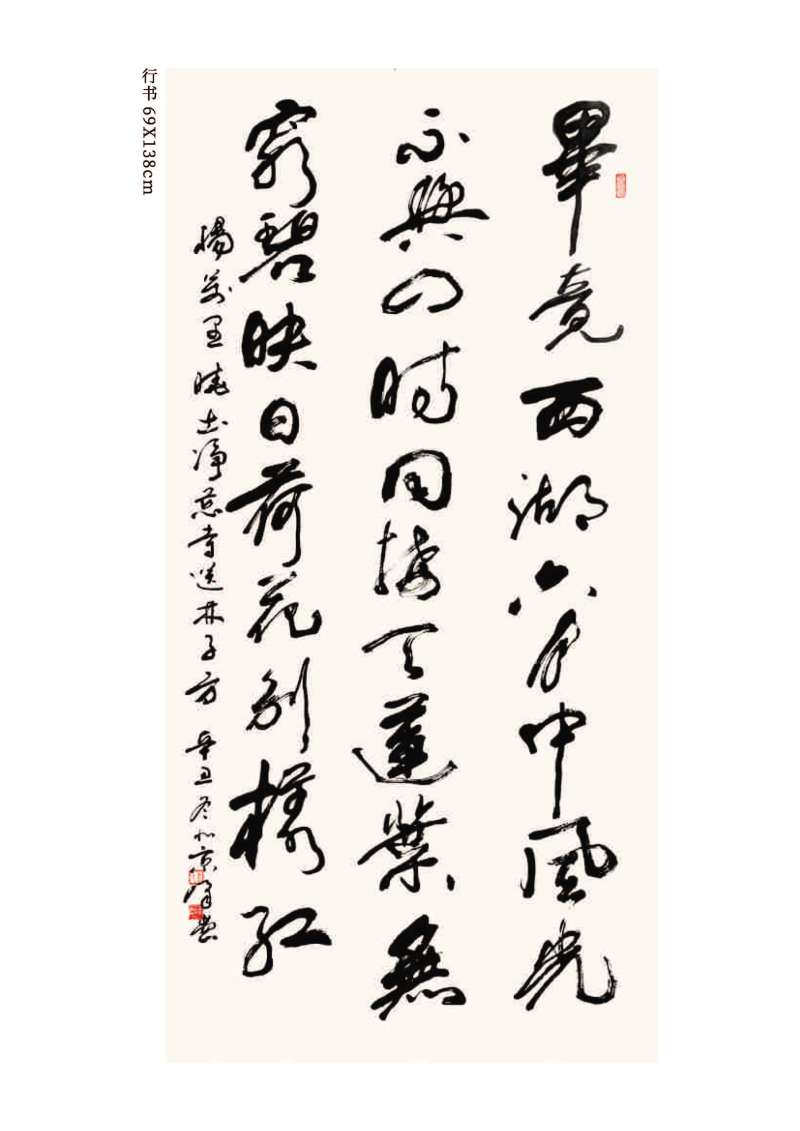 畢竟西湖六月中風光
不與四時同接天蓮葉無
窮碧映日荷花別樣紅
楊萬里曉出淨慈寺送林子方 辛丑冬於京
行书 69X138cm